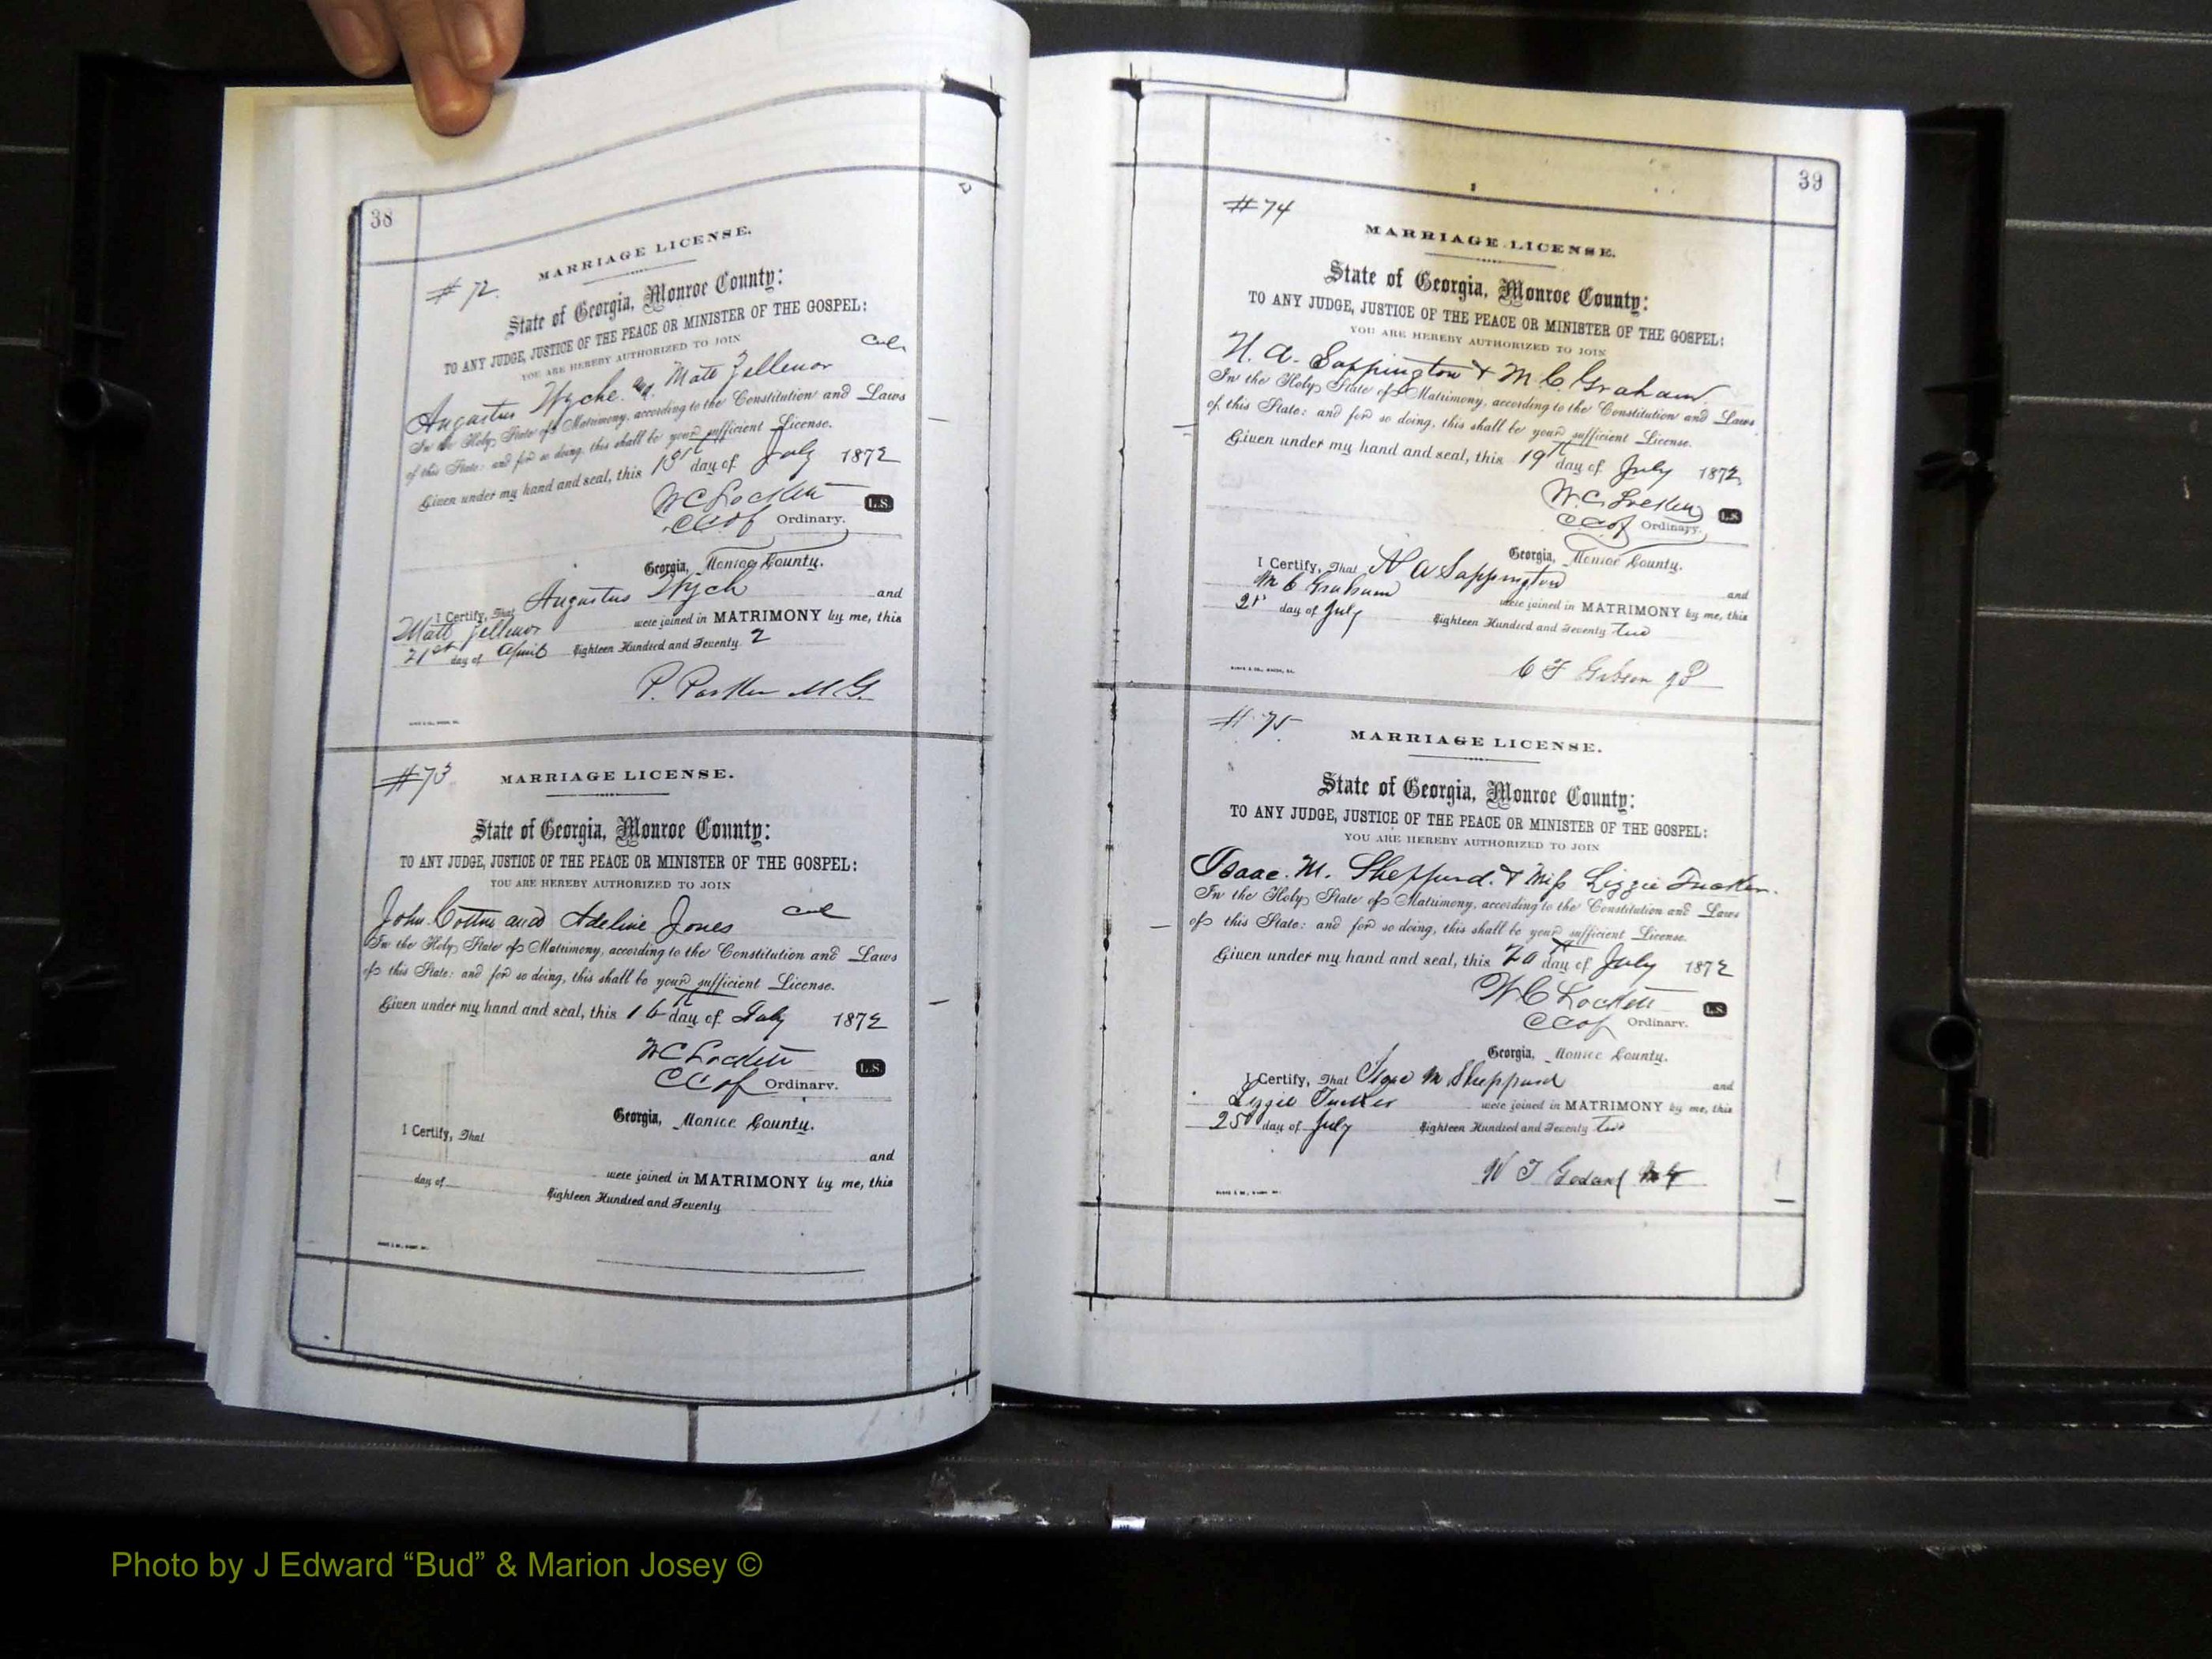 38
# 72.
MARRIAGE LICENSE.
State of Georgia, Monroe County:
TO ANY JUDGE, JUSTICE OF THE PEACE OR MINISTER OF THE GOSPEL:
YOU ARE HEREBY AUTHORIZED TO JOIN
Col
Augustus Wyche & Matt
In the Holy State of Matrimony, according to the Constitution and Laws
of this State: and for so doing, this shall be your sufficient License.
Given under my hand and seal, this day of July 1872
W C Lockett L.S.
CCOf Ordinary.
Georgia, Monroe County.
I Certify, That Augustus Wych and
Matt were joined in MATRIMONY by me, this
21st day of April Eighteen Hundred and Seventy 2
P. M.G.
#73
MARRIAGE LICENSE.
State of Georgia, Monroe County:
TO ANY JUDGE, JUSTICE OF THE PEACE OR MINISTER OF THE GOSPEL:
YOU ARE HEREBY AUTHORIZED TO JOIN
John and Adeline Jones col
In the Holy State of Matrimony, according to the Constitution and Laws
of this State: and for so doing, this shall be your sufficient License.
Given under my hand and seal, this 16th day of July 1872
W C Lockett L.S.
CCOf Ordinary.
Georgia, Monroe County.
I Certify, That
and
were joined in MATRIMONY by me, this
day of Eighteen Hundred and Seventy
39
#74
MARRIAGE LICENSE.
State of Georgia, Monroe County:
TO ANY JUDGE, JUSTICE OF THE PEACE OR MINISTER OF THE GOSPEL:
YOU ARE HEREBY AUTHORIZED TO JOIN
H. A. Sappington & M. C. Graham
In the Holy State of Matrimony, according to the Constitution and Laws
of this State: and for so doing, this shall be your sufficient License.
Given under my hand and seal, this 19th day of July 1872
W. C. Lockett L.S.
CCOf Ordinary.
Georgia, Monroe County.
I Certify, That H A Sappington and
M C Graham were joined in MATRIMONY by me, this
21st day of July Eighteen Hundred and Seventy two
C F Gibson JP
# 75
MARRIAGE LICENSE.
State of Georgia, Monroe County:
TO ANY JUDGE, JUSTICE OF THE PEACE OR MINISTER OF THE GOSPEL:
YOU ARE HEREBY AUTHORIZED TO JOIN
Isaac. M. Sheppard. & Miss Lizzie Tucker.
In the Holy State of Matrimony, according to the Constitution and Laws
of this State: and for so doing, this shall be your sufficient License.
Given under my hand and seal, this 20th day of July 1872
W C Lockett L.S.
CCOf Ordinary.
Georgia, Monroe County.
I Certify, That Isaac M Sheppard and
Lizzie Tucker were joined in MATRIMONY by me, this
25 day of July Eighteen Hundred and Seventy two
W T Godard MG
Photo by J Edward “Bud” & Marion Josey ©